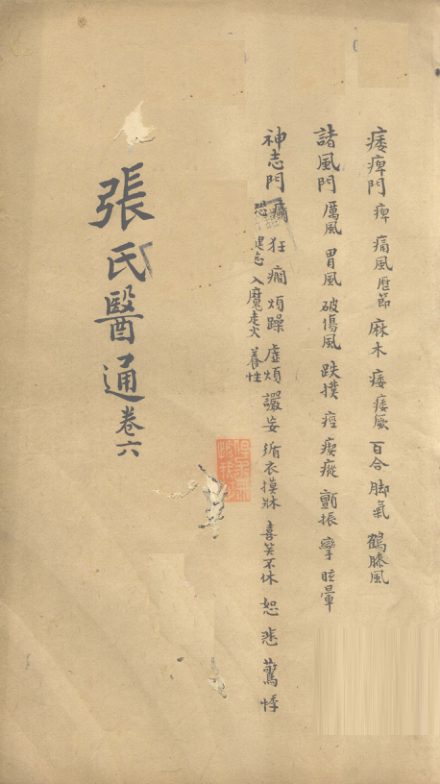 痿痺門 痺 痛風歴節 麻木 痿 痿厥 百合 脚氣 鶴膝風
諸風門 厲風 胃風 破傷風 跌撲 痙 瘈瘲 顫振 攣 眩暈
神志門 癲 狂 癇 煩躁 虛煩 譫妄 循衣摸牀 喜笑不休 怒 悲 驚 悸
健忘 入魔走火 養性
張氏醫通卷六